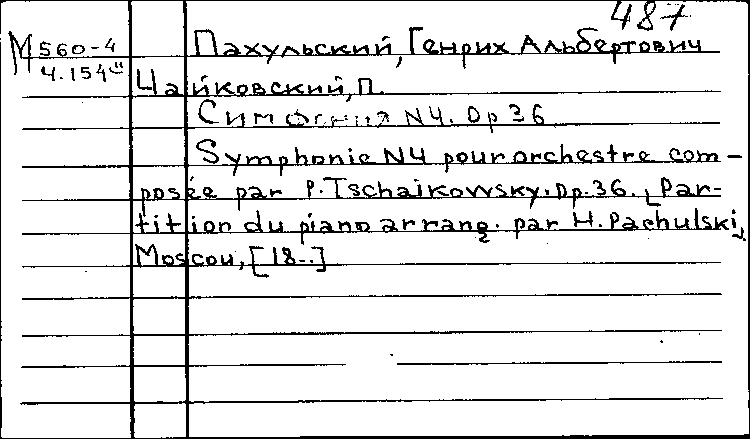 487
М 560-4 Пахульский, Генрих Альбертович
Ч.154 Чайковский, П.
Симфония N4. Op 36
Symphonie N4 pour orchestre com-
posée par P. Tschaikowsky. Op. 36. [Par-
tition du piano arrang. par H. Pachulski],
Moscou, [18--]